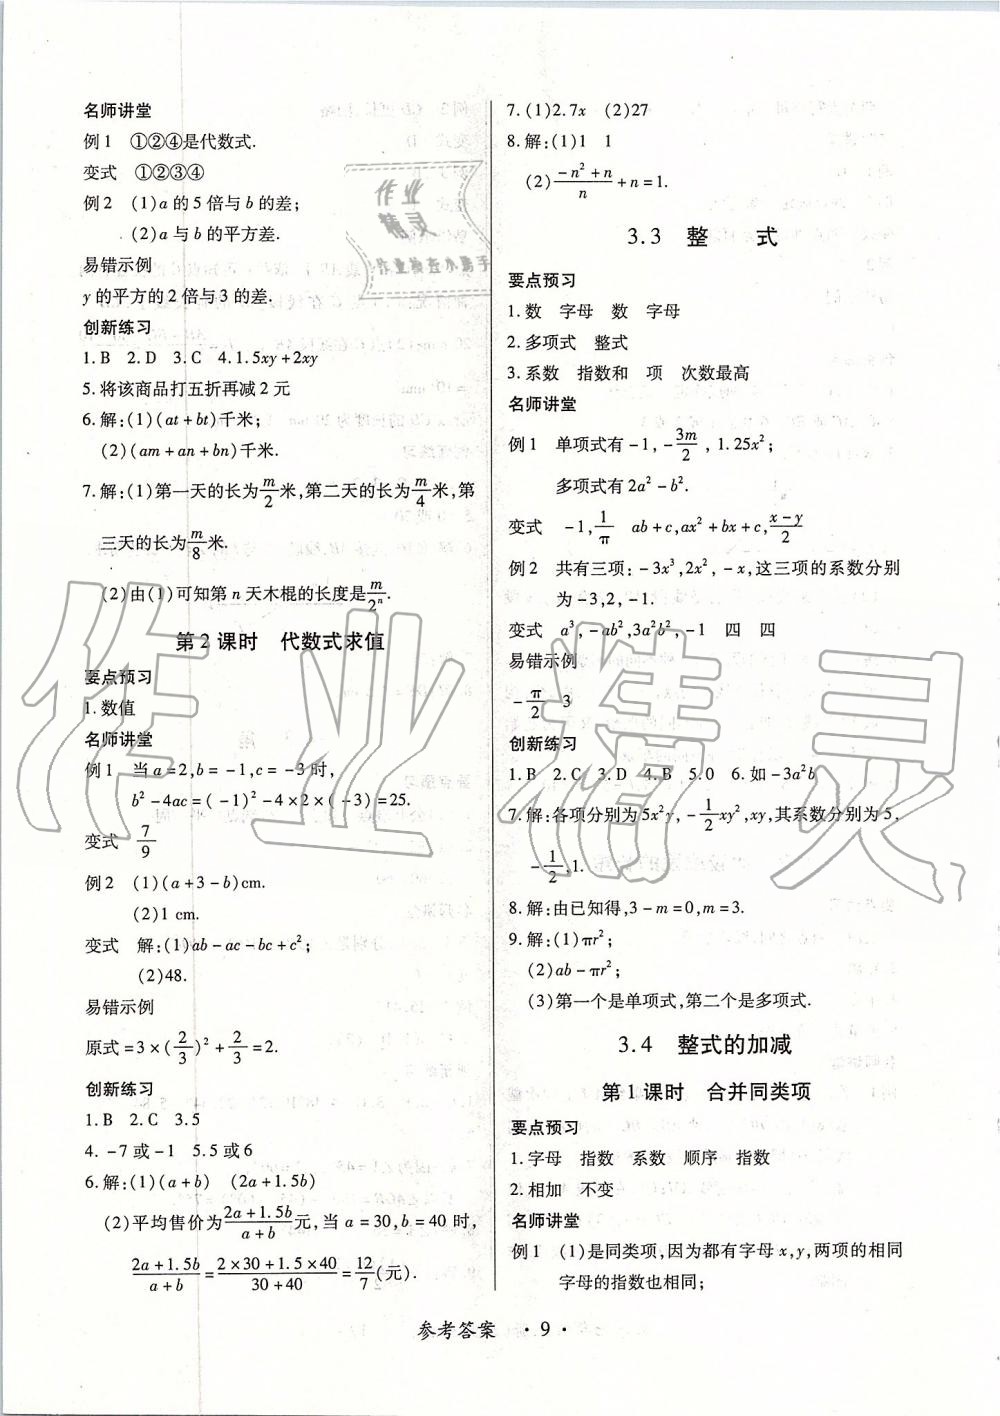 名师讲堂
例1 ①②④是代数式.
变式 ①②③④
例2 (1)a的5倍与b的差;
(2)a与b的平方差.
易错示例
y的平方的2倍与3的差.
创新练习
1.B 2.D 3.C 4.1.5xy+2xy
5.将该商品打五折再减2元
6.解:(1)(at+bt)千米;
(2)(am+an+bn)千米.
7.解:(1)第一天的长为m/2米,第二天的长为m/4米,第
三天的长为m/8米.
(2)由(1)可知第n天木棍的长度是m/2ⁿ.
第2课时 代数式求值
要点预习
1.数值
名师讲堂
例1 当a=2,b=-1,c=-3时,
b²-4ac=(-1)²-4×2×(-3)=25.
变式 7/9
例2 (1)(a+3-b)cm.
(2)1 cm.
变式 解:(1)ab-ac-bc+c²;
(2)48.
易错示例
原式=3×(2/3)²+2/3=2.
创新练习
1.B 2.C 3.5
4.-7或-1 5.5或6
6.解:(1)(a+b) (2a+1.5b)
(2)平均售价为(2a+1.5b)/(a+b)元,当a=30,b=40时,
(2a+1.5b)/(a+b)=(2×30+1.5×40)/(30+40)=12/7(元).
7.(1)2.7x (2)27
8.解:(1)1 1
(2)(-n²+n)/n+n=1.
3.3 整 式
要点预习
1.数 字母 数 字母
2.多项式 整式
3.系数 指数和 项 次数最高
名师讲堂
例1 单项式有-1,-3m/2,1.25x²;
多项式有2a²-b².
变式 -1,1/π ab+c,ax²+bx+c,(x-y)/2
例2 共有三项:-3x³,2x²,-x,这三项的系数分别
为-3,2,-1.
变式 a³,-ab²,3a²b²,-1 四 四
易错示例
-π/2 3
创新练习
1.B 2.C 3.D 4.B 5.0 6.如-3a²b
7.解:各项分别为5x²y,-1/2xy²,xy,其系数分别为5,
-1/2,1.
8.解:由已知得,3-m=0,m=3.
9.解:(1)πr²;
(2)ab-πr²;
(3)第一个是单项式,第二个是多项式.
3.4 整式的加减
第1课时 合并同类项
要点预习
1.字母 指数 系数 顺序 指数
2.相加 不变
名师讲堂
例1 (1)是同类项,因为都有字母x,y,两项的相同
字母的指数也相同;
参考答案 ·9·
作业
精灵
作业检查小帮手
作业精灵